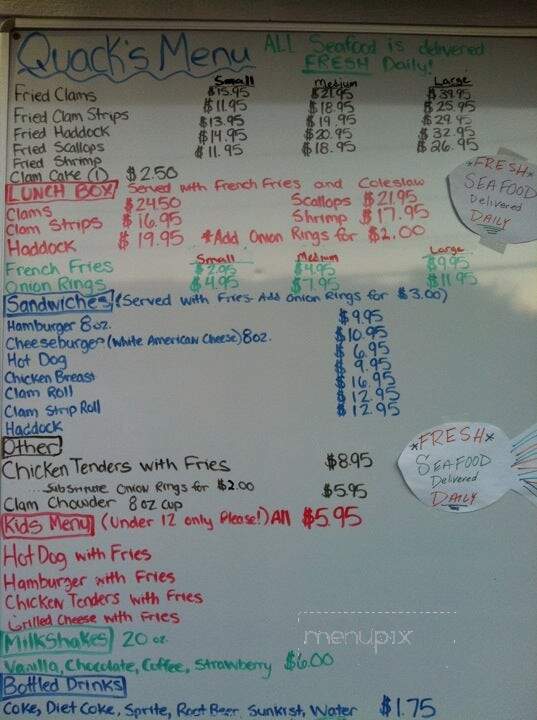 Quack's Menu
ALL Seafood is delivered
FRESH Daily!
Small Medium Large
Fried Clams $15.95 $21.95 $39.95
Fried Clam Strips $11.95 $18.95 $25.95
Fried Haddock $13.95 $19.95 $29.95
Fried Scallops $14.95 $20.95 $32.95
Fried Shrimp $11.95 $18.95 $26.95
Clam Cake (1) $2.50
LUNCH BOX Served with French Fries and Coleslaw
Clams $24.50 Scallops $21.95
Clam Strips $16.95 Shrimp $17.95
Haddock $19.95 *Add Onion Rings for $2.00
Small Medium Large
French Fries $2.95 $4.95 $9.95
Onion Rings $4.95 $7.95 $11.95
Sandwiches (Served with Fries- Add Onion Rings for $3.00)
Hamburger 8oz. $9.95
Cheeseburger (White American Cheese) 8oz. $10.95
Hot Dog $6.95
Chicken Breast $9.95
Clam Roll $16.95
Clam Strip Roll $12.95
Haddock $12.95
Other
Chicken Tenders with Fries $8.95
....Substitute Onion Rings for $2.00
Clam Chowder 8oz cup $5.95
Kids Menu (Under 12 only Please!) All $5.95
Hot Dog with Fries
Hamburger with Fries
Chicken Tenders with Fries
Grilled Cheese with Fries
Milkshakes 20 oz.
Vanilla, Chocolate, Coffee, Strawberry $6.00
Bottled Drinks
Coke, Diet Coke, Sprite, Root Beer, Sunkist, Water $1.75
*FRESH*
SEAFOOD
Delivered
DAILY
*FRESH*
SEAFOOD
Delivered
DAILY
menupix